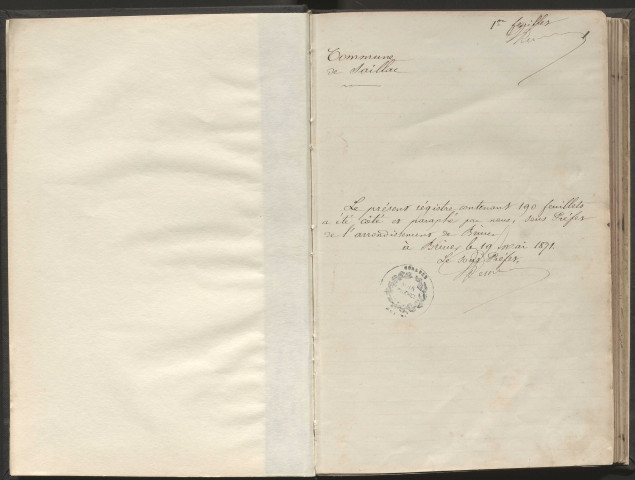 1er feuillet
Commune
de Saillac
Le présent régistre contenant 190 feuillets
a été coté et paraphé par nous, Sous Préfet
de l'arrondissement de Brive
à Brive, le 19 mai 1871.
Le Sous Préfet,